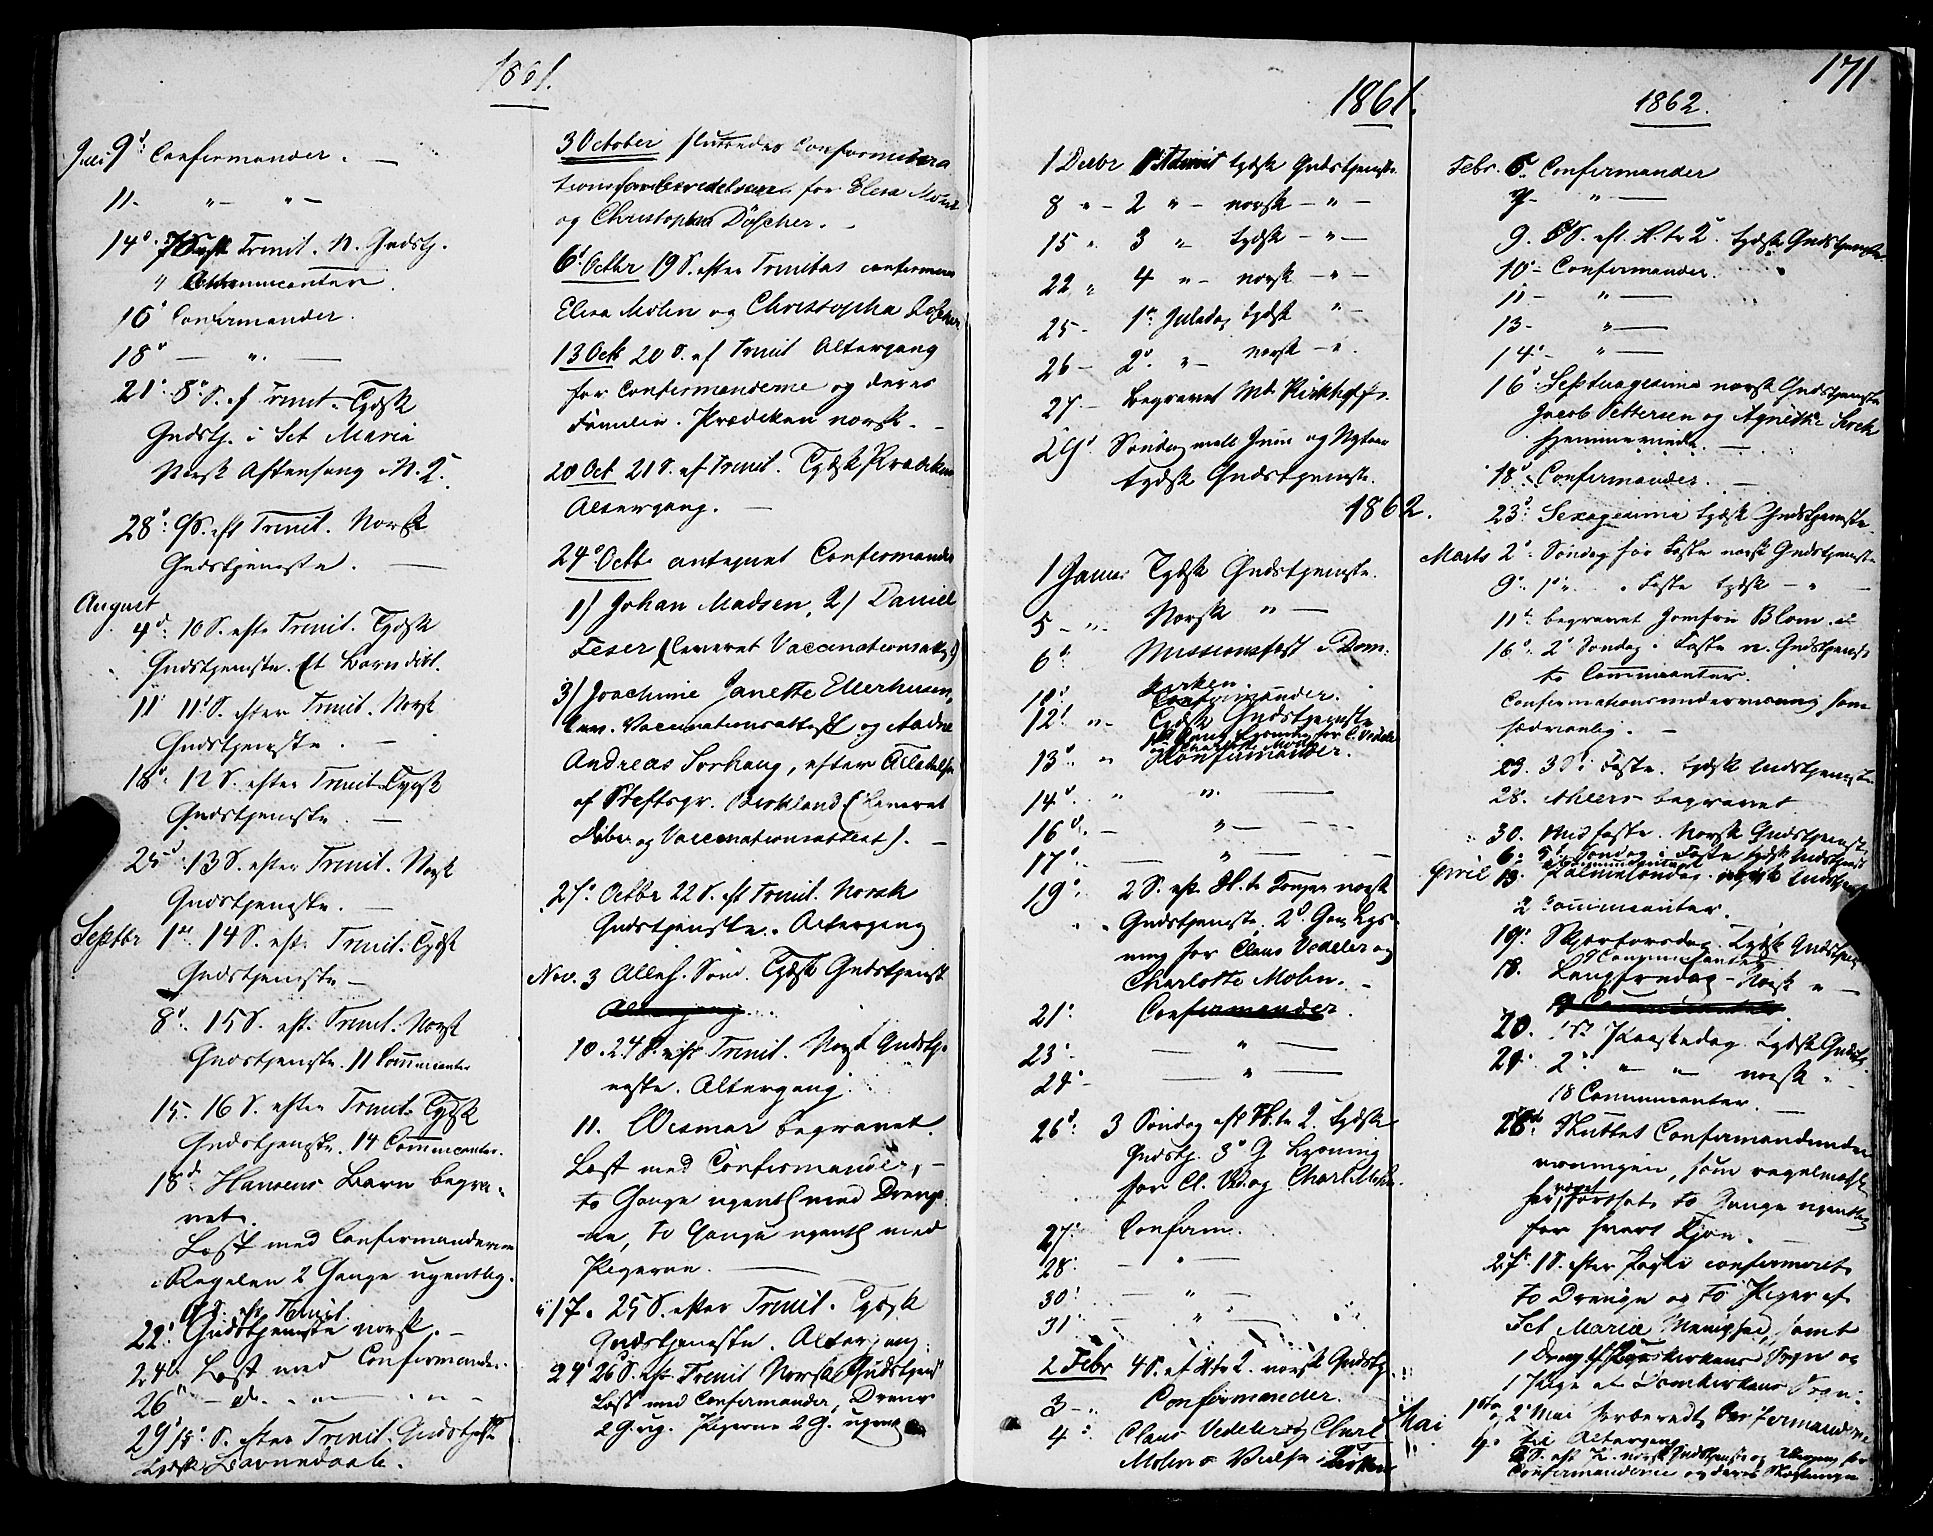 1861.
Juli 9d Confirmander. —
11- " — " —
14d. 7 S. eft Trinit. N. Gudstj.
" Communicanter.
16d Confirmander.
18d — " —
21d. 8d S. ef Trinit. Tydsk
Gudstj. i Sct Maria
Norsk Aftensang
28d. 9 S. eft Trinit. Norsk
Gudstjeneste. —
August
4d. 10 S. efter Trinit. Tydsk
Gudstjeneste. Et Barn
11d 11d S. efter Trinit. Norsk
Gudstjeneste. —
18d. 12 S. efter Trinit. Tydsk
Gudstjeneste. —
25d. 13 S. efter Trinit. Norsk
Gudstjeneste. —
Septbr 1ste 14 S. eft. Trinit. Tydsk
Gudstjeneste —
8d. 15 S. eft. Trinit. Norsk
Gudstjeneste. 11 Communicanter
15. 16 S. efter Trinit. Tydsk
Gudstjeneste. 14 Communicanter.
18d Hansens Barn begra-
vet.
Læst med Confirmanderne
i Regelen 2 Gange ugentlig.
S. eft Trinit.
22d Gudstjeneste norsk. —
24d. Læst med Confirmander.
26 — d. — " —
29d 18d. S. efter Trinit. Gudstjeneste
tydsk Barnedaab.
3 October sluttedes Confirma-
tionsforberedelsen for Elisa Mohn
og Christopha Döscher. —
6d. Octbr 19 S. efter Trinitas confirmeret
Elisa Mohn og Christopha Döscher
13 Octb 20 S. ef Trinit Altergang
for Confirmanderne og deres
Familie. Prædiken norsk. —
20 Oct 21 S. ef Trinit. Tydsk Prædiken
Altergang. —
24d Octbr antegnet Confirmander
1) Johan Madsen, 2) Daniel
Feser (leveret Vaccinationsattest)
3) Joachime Janette Ellerhusen,
lev. Vaccinationsattest og
Andreas Sorhaug, efter
af Stiftspr. Birkeland (Leveret
og Vaccinationsattest). —
27d Octbr 22 S. eft Trinit. Norsk
Gudstjeneste. Altergang
Nov. 3 Alleh. Sönd. Tydsk Gudstjeneste
Altergang
10. 24 S. efter Trinit. Norsk Gudstje-
neste. Altergang.
11. Wesmar begravet.
Læst med Confirmander, —
to Gange ugentl med Drenge-
ne, to Gange ugentl med
Pigerne. —
17. 25 S. efter Trinit. Tydsk
Gudstjeneste. Altergang.
24d 26d S. eft Trinit Norsk Gudstjeneste
Læst med Confirmander, Drenge
2 G. ug. Pigerne 2 G. ugentl
171
1861.
1 Decbr 1 Advent tydsk Gudstjeneste
8 " — 2 " — norsk — " —
15 " 3 " tydsk — " —
22 " 4 " — norsk — " —
25 — 1ste Juledag tydsk " —
26 — 2d. " — norsk — " .
27. — Begravet Md. Kirkhoff.
29d Söndag mell Juul og Nytaar
tydsk Gudstjeneste.
1862.
1 Januar Tydsk Gudstjeneste.
5 — " Norsk " —
6d. Missionsfest i Dom-
kirken.
10d Confirmander.
12d " Tydsk Gudstjeneste
1ste Gang Lysning for C. Vedeler
og Charlotte Mohn
13d " Confirmander.
14d. " " —
16d. — " —
17d — " —
19d. 2 S. eft. H. tr Konger norsk
Gudstjeneste. 2d. Gang Lys-
ning for Claus Vedeler og
Charlotte Mohn. —
21d. Confirmander.
23d. — " —
24d. — " —
26d. 3 Söndag eft H. tr K. tydsk
Gudstj. 3d G Lysning
for Cl. Ved. og Charl. Mohn.
27d. Confirm.
28d. — " —
30d. — " —
31d. — " —
2 Febr 4 S. ef H tr K. norsk Gudstj.
3 — " Confirmander.
4d. Claus Vedeler og Charl
Mohn Vielse i Kirken
1862.
Febr. 6. Confirmander
7 — " —
9. 5 S. eft. H. tr K. tydsk Gudstjeneste
10 — Confirmander.
11 — " —
13 — " —
14d — " —
16d. Septuagesima norsk Gudstjeneste
Jacob Pettersen og Agnethe
hjemmeviede. —
18d. Confirmander. —
23d. Sexagesima tydsk Gudstjeneste
Marts 2d. Söndag för Faste norsk Gudstjeneste
9d. 1d " " Faste tydsk — " —
11d. begravet Jomfru Blom.
16d. 2d Söndag i Faste n. Gudstjeneste
to Communicanter.
Confirmationsundervisning som
sædvanlig. —
23. 3 S i Faste. tydsk Gudstjeneste
28. Ahlers begravet
30. Midfaste. Norsk Gudstjeneste
6. 5d Söndag i Faste tydsk Gudstjeneste
Communicanter
April 13. Palmesöndag. norsk Gudstjeneste
2 Communicanter.
17d. Skjærtorsdag. Tydsk Gudstjeneste
9 Communicanter
18. Langfredag — Norsk " —
9 Communicanter
20. 1ste Paaskedag. Tydsk Gudstj.
21. 2d. " — " norsk " —
18 Communicanter. —
26de. Sluttet Confirmandunder-
visningen, som regelmæss.
været fortsat to Gange ugentlig
for hvert Kjön. —
27d. 1 S. efter Paaske confirmeret
to Drenge og to Piger af
Sct Mariæ Menighed, samt
1 Dreng af Korskirkens Sogn og
1 Pige af Domkirkens Sogn.
Mai 1ste og 2d Mai forberedt Confirmanderne
til Altergang
4. 2 S. eft P. norsk Gudstjeneste og Altergang for
Confirmanderne og deres Slægtninge